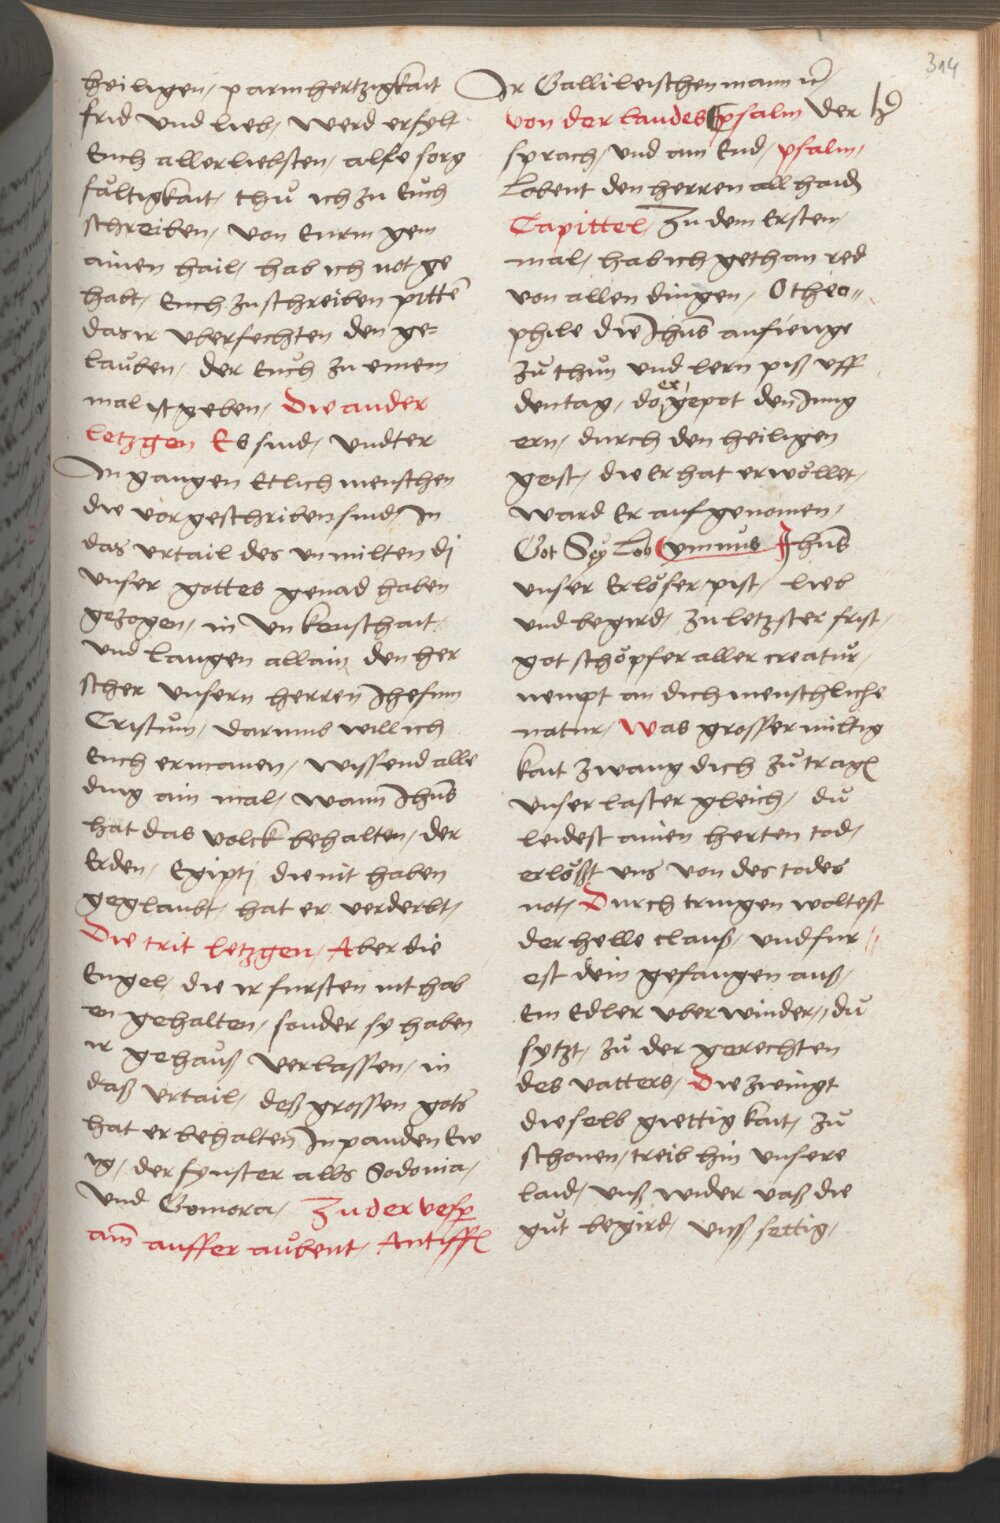 314
heiligen, parmhertzigkait
frid vnd lieb, werd erfylt
Euch allerliebsten, alse sorg
fältigkait, thů ich zu Eůch
schreiben, von Eurm gem
ainen hail, hab ich not ge
habt, Euch zuschreiben pittē
das ir vberfechten den ge=
lauben, der Euch zu einem
mal ist geben, Die ander
letzgen Es sind, vndter
In gangen Etlich menschen
die vorgeschriben sind, In
das vrtail des vnmilten dj
vnser gottes genad haben
gezogen, in vnkeuschait,
vnd laugen allain den her
scher vnsern herren Jhesum
Cristům, darumb will ich
Euch ermanen, wissend alle
ding ain mal, wann Jhūs
hat das volck behalten, der
Erden, Egiptj die nit haben
geglaubt, hat er verderbt,
Die trit letzgen, Aber die
Engel, die ir fursten nit hab
en gehalten, sonder sy haben
ir gehauß verlassen, in
daß vrtail, deß grossen gots
hat er behalten In panden Ew
ig, der fynster alls Sodoma,
vnd Gomora, Zu der vesp
am auffer aubent, Antiff
Ir Gallileischen mann
von der laudes psalm der
sprach, vnd am End, psalm,
Lobent den herren all haid
Capittel, Zu dem Ersten,
mal, hab ich gethan red
von allen dingen, O theo=
phile die Jhūs anfienge
zů thůn vnd lern piß vff
den tag, do er gepot den Jung
ern, durch den heiligen
geist, die Er hat erwöllet,
ward Er aufgenomen,
Got Sey Lob ymnus Jhūs
vnser Erlöser pist, lieb
vnd begird, zu letzster frist,
got schöpfer aller creatůr,
nempt an dich menschliche
natur, Was grosser miltig
kait zwang dich zů tragē
vnser laster gleich, dů
leidest ainen herten tod,
erlößt vns von des todes
not, Durch tringen woltest
der helle clauß, vnd fur
est dein gefangen auß,
Ein Edler vberwinder, dů
sytzt, zů der gerechten
des vatters, Die zwingt
die selb giettigkait, zů
schonen, treib hin vnsere
laid, vnß wider vaß die
gůt begird, vnß settig,